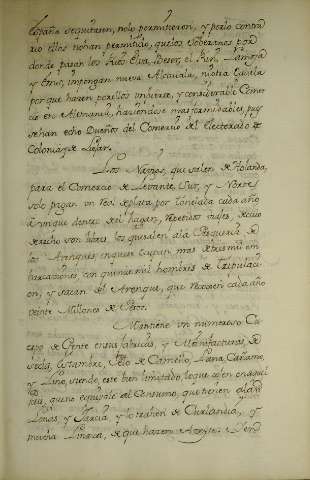 España sequitasen, nolo permitieron, y por lo contra
rio ellos nohan permitido, quelos Soberanos por
donde pasan los Rios Elva, Veser, el Rin,
y Ems, impongan nueva Alcavala, niotra Gavela
por que hazen por ellos un fuerte, y considerable Comer
cio en Alemania, haviendose mas formidables, pues
sehan echo Dueños del Comercio del Electorado de
Colonia, y de
Los Navios, que salen de Holanda,
para el Comercio de Levante, Sur, y Norte,
solo pagan un Real de plata por tonelada cada año
aunque dentro del hagan, repetidos viajes, de cuio
derecho son libres los que salen ala Pesquería de
los Arenques, en que se ocupan mas de tres mil em
barcaciones, con quinze mil hombres de tripulaci
on, y sacan del Arenque, que recojen cada año
veinte Millones de Pesos.
Mantiene un numeroso Cu
erpo de Gente en sus fabricas, y Manifacturas de
seda, Estambre, Pelo de Camello, Lana, Cañamo,
y Lino, siendo este bien limitado, lo que cojen en aquel
Pais, que no equivale al Consumo, que tienen
Lonas, y Jarcia y lo trahen de Curlandia, y
mucha Linaza, de que hazen Azeyte.